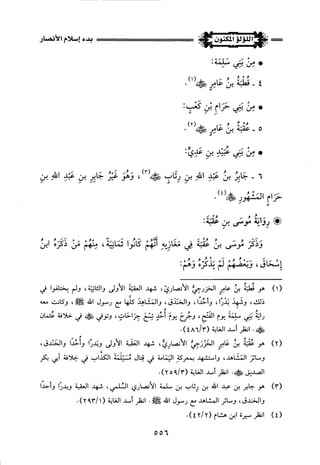 اللؤلؤ المكنون
بدء إسلام الأنصار
* مِنْ بَنِي سَلِمَةَ:
٤ - قُطْبَةُ بنُ عَامِرٍ ﷺ(١).
* مِنْ بَنِي حَرَامِ بْنِ كَعْبٍ:
٥ - عُقْبَةُ بنُ عَامِرٍ ﷺ(٢).
* مِنْ بَنِي عُبَيْدِ بنِ عَدِيٍّ:
٦ - جَابِرُ بنُ عَبْدِ اللهِ بنِ رِئَابٍ ﷺ(٣)، وَهُوَ غَيْرُ جَابِرِ بنِ عَبْدِ اللهِ بنِ
حَرَامٍ المَشْهُورِ ﷺ(٤).
رِوَايَةُ مُوسَى بنِ عُقْبَةَ:
وَذَكَرَ مُوسَى بنُ عُقْبَةَ فِي مَغَازِيهِ أَنَّهُمْ كَانُوا ثَمَانِيَةً، مِنْهُمْ مَنْ ذَكَرَهُ ابنُ
إِسْحَاقَ، وَبَعْضُهُمْ لَمْ يَذْكُرْهُ وَهُمْ:
(١) هو قُطْبَةُ بنُ عامرٍ الخَزْرجيُّ الأنصاريُّ، شهد العقبة الأولى والثانية، ولم يختلفوا في
ذلك، وشهد بَدْرًا، وأُحُدًا، والخندق، والمشاهد كلها مع رسول الله ﷺ، وكانت معه
رايةُ بني سَلِمة يوم الفتح، وجُرِحَ يومَ أُحُدٍ تِسْع جِرَاحاتٍ، وتوفي ﷺ في خلافة عُثمان
ﷺ. انظر أسد الغابة (٤٨٦/٣).
(٢) هو عُقْبَةُ بنُ عَامِرٍ الخَزْرجيُّ الأنصاريُّ، شهد العَقَبة الأولى وبَدْرًا وأُحُدًا والخندق،
وسائر المشاهد، واستشهد بمعركةِ اليَمَامة في قِتال مُسَيْلِمَةَ الكذَّاب في خِلافة أبي بكر
الصديق ﷺ. انظر أسد الغابة (٢٥٩/٣).
(٣) هو جابر بن عبد الله بن رئاب بن سلمة الأنصاري السلمي، شهد العقبة وبدرًا وأحدًا
والخندق، وسائر المشاهد مع رسول الله ﷺ. انظر أسد الغابة (٢٩٣/١).
(٤) انظر سيرة ابن هشام (٤٢/٢).
٥٥٦